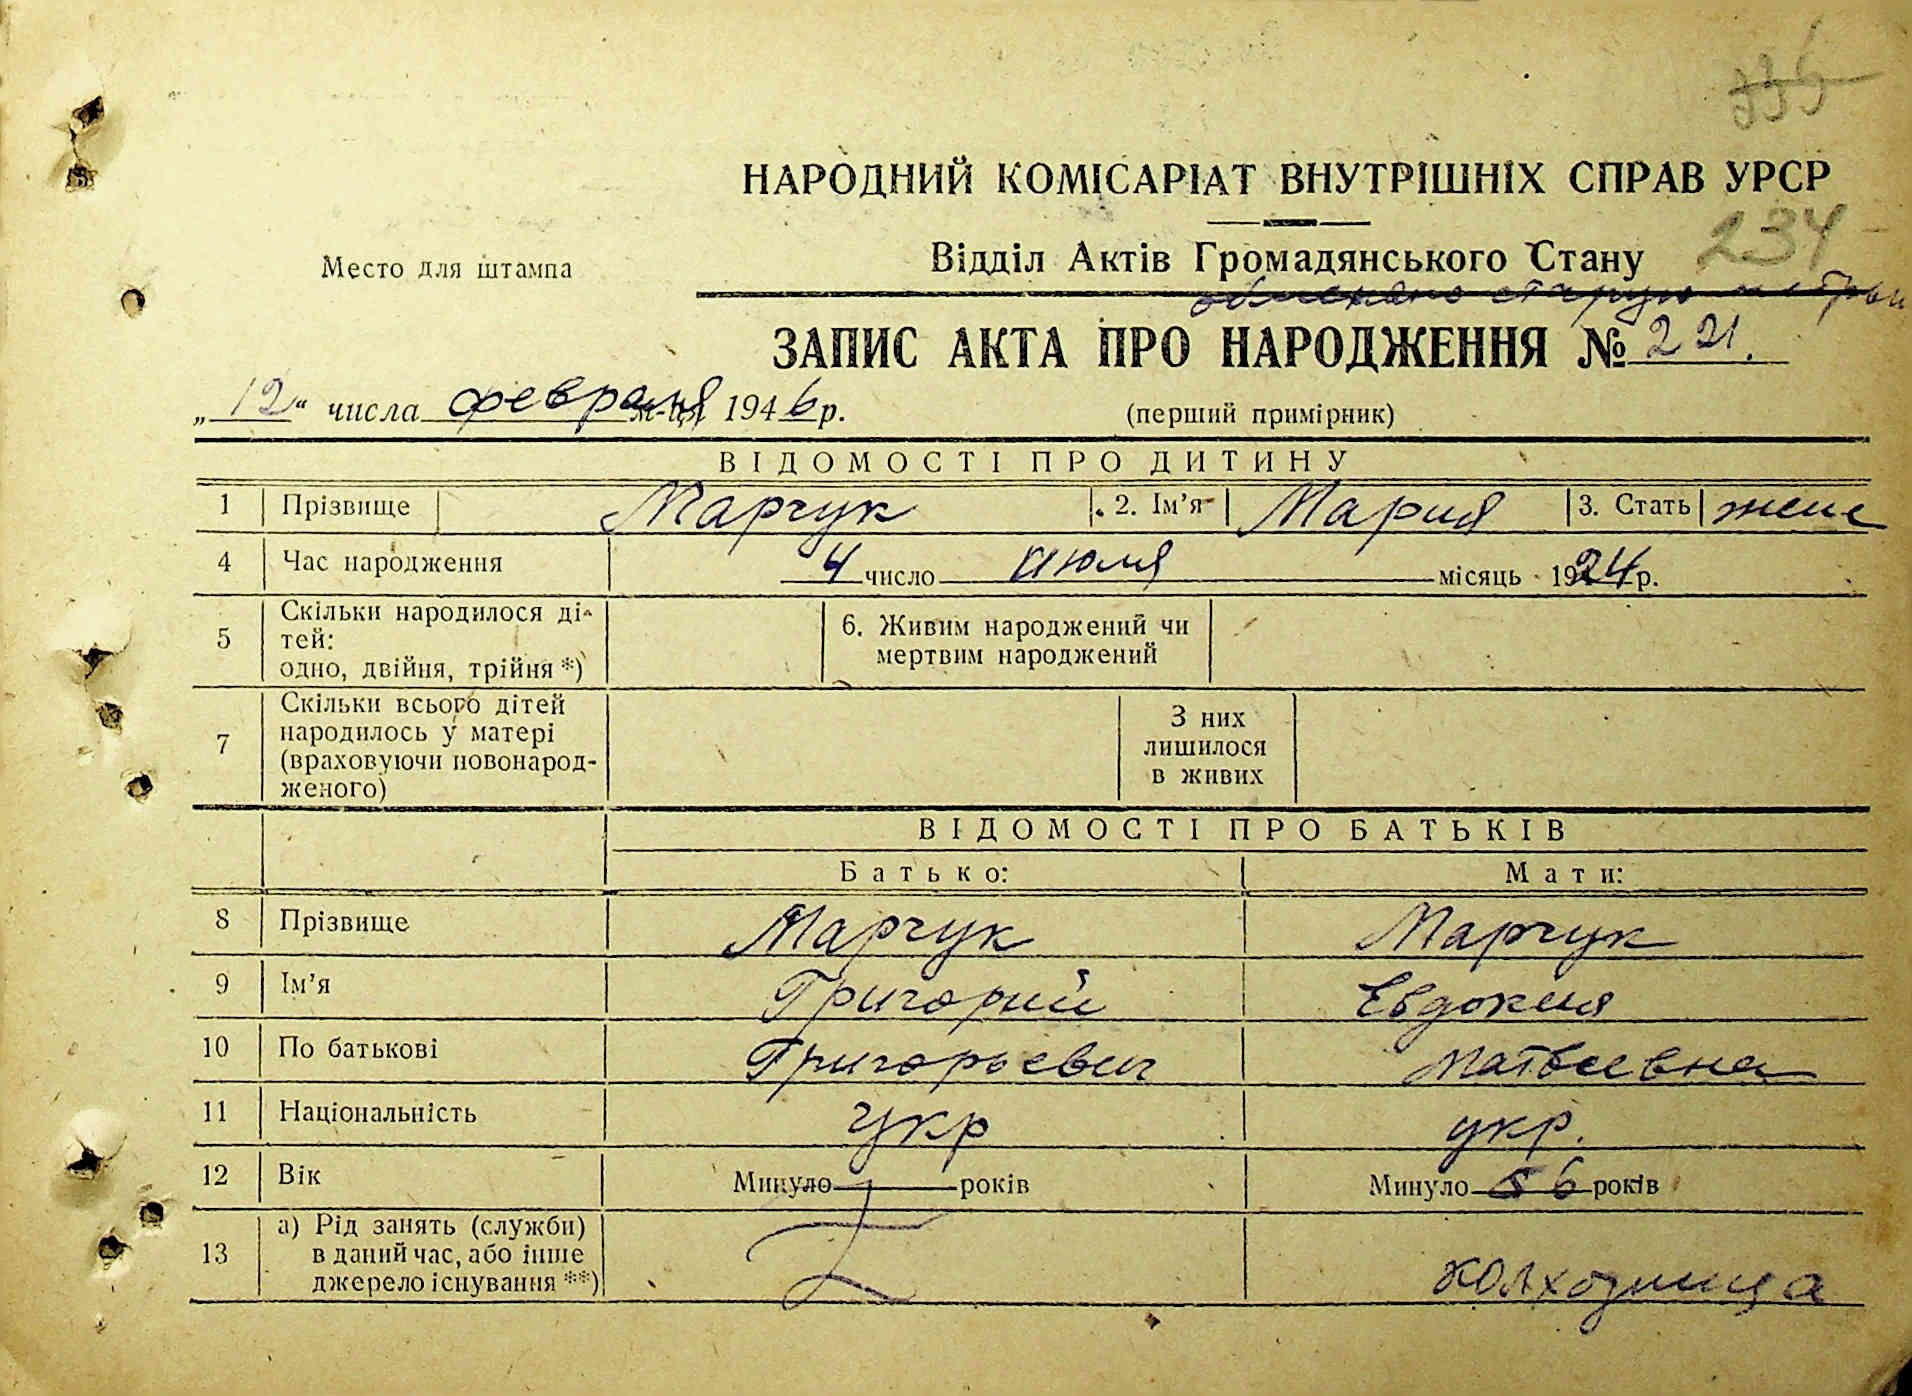 335
НАРОДНИЙ КОМІСАРІАТ ВНУТРІШНІХ СПРАВ УРСР
234
Место для штампа
Відділ Актів Громадянського Стану
ЗАПИС АКТА ПРО НАРОДЖЕННЯ № 221.
„12“ числа февраля м-ця 1946 р.
(перший примірник)
ВІДОМОСТІ ПРО ДИТИНУ
1 Прізвище Марчук 2. Ім'я Мария 3. Стать женс
4 Час народження 4 число июля місяць 1924 р.
5 Скільки народилося ді-
тей:
одно, двійня, трійня *)
6. Живим народжений чи
мертвим народжений
7 Скільки всього дітей
народилось у матері
(враховуючи новонарод-
женого)
З них
лишилося
в живих
ВІДОМОСТІ ПРО БАТЬКІВ
Батько: Мати:
8 Прізвище Марчук Марчук
9 Ім'я Григорий Евдокия
10 По батькові Григорьевич Матвеевна
11 Національність укр укр.
12 Вік Минуло років Минуло 56 років
13 а) Рід занять (служби)
в даний час, або інше
джерело існування **)
колхозница